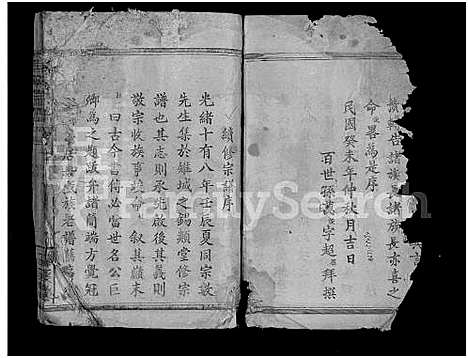 命畧為是序
民國癸未年仲秋月吉日
百世孫萬字超拜撰
續修宗譜序
光緒十有八年壬辰夏同宗敬
先生集於雒城之錫類堂修宗
譜也其志則承先啟後其義則
敬宗收族事竣命叙其巔末
曰古今當得必當世名公巨
卿為之題跋弁諸簡端方覺冠
FamilySearch